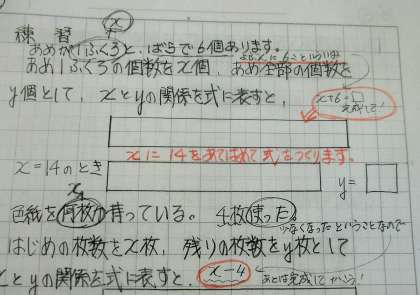 練習 x
あめが1ふくろと、ばらで6個あります。
あめ1ふくろの個数をx個、あめ全部の個数を
y個として、xとyの関係を式に表すと、
x+6=□
完成して!
xに14をあてはめて式をつくります。
x=14のとき
y=□
x
色紙を何枚か持っている。 4枚使った。
少なくなったということなので
はじめの枚数をx枚、残りの枚数をy枚として
xとyの関係を式に表すと、x-4
あとは完成して